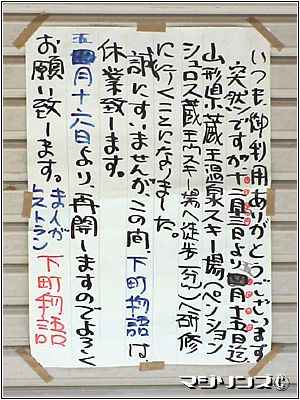 いつも御利用ありがとうございます
突然ですが十二月二日より四月十五日迄、
山形県蔵王温泉スキー場(ペンション
シュロス蔵王内スキー場へ徒歩一分)へ研修
に行くことになりました。
誠にすいませんがこの間、下町物語は、
休業致します。
月十六日より、再開しますのでよろしく
お願い致します。
まんが
レストラン 下町物語
マジリンズ